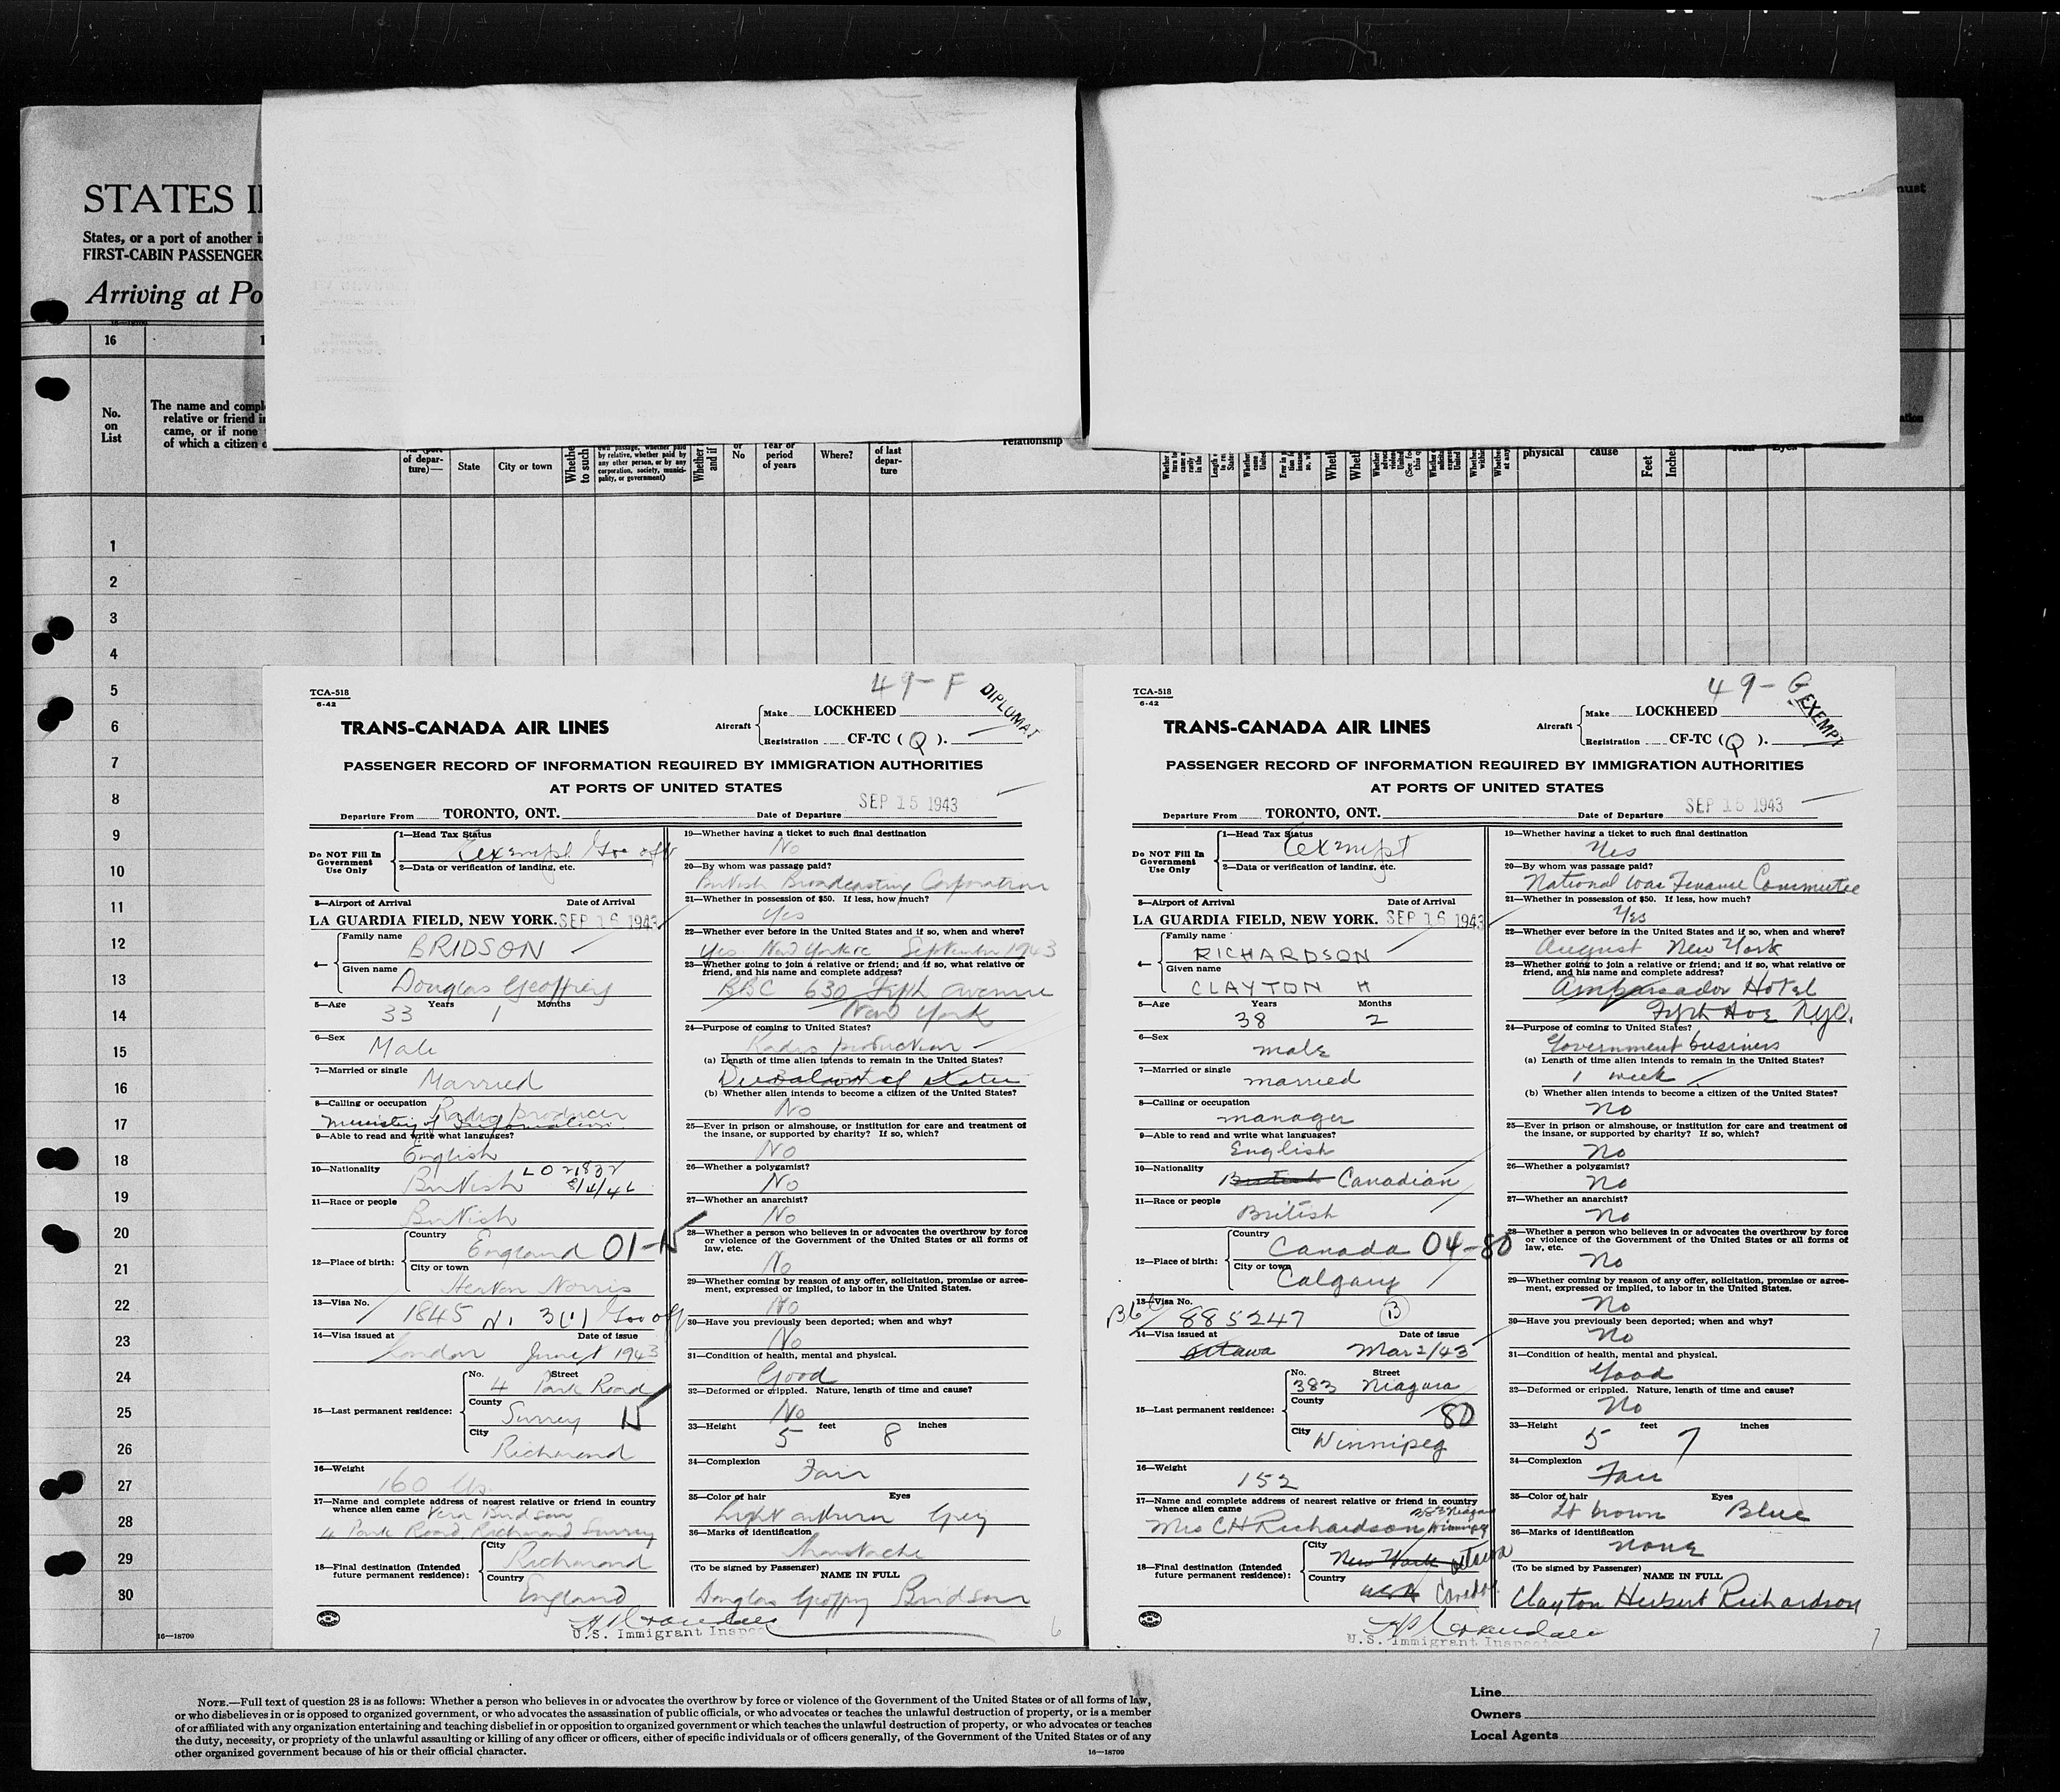 STATES I
States, or a port of another i
FIRST-CABIN PASSENGER
Arriving at Po
must
16
No.
on
List
The name and compl
relative or friend i
came, or if none
of which a citizen o
of depar-
ture)—
State
City or town
Whethe
to such
by relative, whether paid by
any other person, or by any
corporation, society, munici-
pality, or government)
Whether
and if
or
No
Year or
period
of years
Where?
of last
depar-
ture
relationship
physical
cause
Feet
Inches
1
2
3
4
5
6
7
8
9
10
11
12
13
14
15
16
17
18
19
20
21
22
23
24
25
26
27
28
29
30
16—18709
TCA-518
6-42
49-F
DIPLOMAT
TRANS-CANADA AIR LINES
Aircraft
Make LOCKHEED
Registration CF-TC (Q).
PASSENGER RECORD OF INFORMATION REQUIRED BY IMMIGRATION AUTHORITIES
AT PORTS OF UNITED STATES
Departure From TORONTO, ONT. Date of Departure SEP 15 1943
Do NOT Fill In
Government
Use Only
1—Head Tax Status
exempt Gov off
2—Data or verification of landing, etc.
3—Airport of Arrival Date of Arrival
LA GUARDIA FIELD, NEW YORK. SEP 16 1943
4—
Family name
BRIDSON
Given name
Douglas Geoffrey
5—Age Years Months
33 1
6—Sex
Male
7—Married or single
Married
8—Calling or occupation
Radio producer
Ministry of Information
9—Able to read and write what languages?
English
10—Nationality
British LO 21832
8/4/42
11—Race or people
British
12—Place of birth:
Country
England 01-15
City or town
Heaton Norris
13—Visa No.
1845 3(1) Gov off
14—Visa issued at Date of issue
London June 1943
15—Last permanent residence:
No. Street
4 Park Road
County
Surrey 15
City
Richmond
16—Weight
160 lbs
17—Name and complete address of nearest relative or friend in country
whence alien came Vera Bridson
4 Park Road, Richmond Surrey
18—Final destination (Intended
future permanent residence):
City
Richmond
Country
England
U.S. Immigrant Inspec
19—Whether having a ticket to such final destination
No
20—By whom was passage paid?
British Broadcasting Corporation
21—Whether in possession of $50. If less, how much?
Yes
22—Whether ever before in the United States and if so, when and where?
Yes New York September 1943
23—Whether going to join a relative or friend; and if so, what relative or
friend, and his name and complete address?
BBC 630 Fifth Avenue
New York
24—Purpose of coming to United States?
Radio production
(a) Length of time alien intends to remain in the United States?
(b) Whether alien intends to become a citizen of the United States?
No
25—Ever in prison or almshouse, or institution for care and treatment of
the insane, or supported by charity? If so, which?
No
26—Whether a polygamist?
No
27—Whether an anarchist?
No
28—Whether a person who believes in or advocates the overthrow by force
or violence of the Government of the United States or all forms of
law, etc.
No
29—Whether coming by reason of any offer, solicitation, promise or agree-
ment, expressed or implied, to labor in the United States.
No
30—Have you previously been deported; when and why?
No
31—Condition of health, mental and physical.
Good
32—Deformed or crippled. Nature, length of time and cause?
No
33—Height feet inches
5 8
34—Complexion
Fair
35—Color of hair Eyes
Light auburn Grey
36—Marks of identification
Moustache
(To be signed by Passenger) NAME IN FULL
Douglas Geoffrey Bridson
6
TCA-518
6-42
49-G
EXEMPT
TRANS-CANADA AIR LINES
Aircraft
Make LOCKHEED
Registration CF-TC (Q).
PASSENGER RECORD OF INFORMATION REQUIRED BY IMMIGRATION AUTHORITIES
AT PORTS OF UNITED STATES
Departure From TORONTO, ONT. Date of Departure SEP 15 1943
Do NOT Fill In
Government
Use Only
1—Head Tax Status
exempt
2—Data or verification of landing, etc.
3—Airport of Arrival Date of Arrival
LA GUARDIA FIELD, NEW YORK. SEP 16 1943
4—
Family name
RICHARDSON
Given name
CLAYTON H
5—Age Years Months
38 2
6—Sex
male
7—Married or single
married
8—Calling or occupation
manager
9—Able to read and write what languages?
English
10—Nationality
British Canadian
11—Race or people
British
12—Place of birth:
Country
Canada 04-80
City or town
Calgary
13—Visa No.
885247 B
14—Visa issued at Date of issue
Ottawa Mar 2/43
15—Last permanent residence:
No. Street
383 Niagara
County
80
City
Winnipeg
16—Weight
152
17—Name and complete address of nearest relative or friend in country
whence alien came 383 Niagara
Mrs CH Richardson Winnipeg
18—Final destination (Intended
future permanent residence):
City
New York Ottawa
Country
USA Canada
U.S. Immigrant Inspec
19—Whether having a ticket to such final destination
Yes
20—By whom was passage paid?
National War Finance Committee
21—Whether in possession of $50. If less, how much?
Yes
22—Whether ever before in the United States and if so, when and where?
August New York
23—Whether going to join a relative or friend; and if so, what relative or
friend, and his name and complete address?
Ambassador Hotel
Fifth Ave N.Y.C.
24—Purpose of coming to United States?
Government business
(a) Length of time alien intends to remain in the United States?
1 week
(b) Whether alien intends to become a citizen of the United States?
no
25—Ever in prison or almshouse, or institution for care and treatment of
the insane, or supported by charity? If so, which?
no
26—Whether a polygamist?
no
27—Whether an anarchist?
no
28—Whether a person who believes in or advocates the overthrow by force
or violence of the Government of the United States or all forms of
law, etc.
no
29—Whether coming by reason of any offer, solicitation, promise or agree-
ment, expressed or implied, to labor in the United States.
no
30—Have you previously been deported; when and why?
no
31—Condition of health, mental and physical.
Good
32—Deformed or crippled. Nature, length of time and cause?
No
33—Height feet inches
5 7
34—Complexion
Fair
35—Color of hair Eyes
Lt brown Blue
36—Marks of identification
none
(To be signed by Passenger) NAME IN FULL
Clayton Herbert Richardson
7
NOTE.—Full text of question 28 is as follows: Whether a person who believes in or advocates the overthrow by force or violence of the Government of the United States or of all forms of law,
or who disbelieves in or is opposed to organized government, or who advocates the assassination of public officials, or who advocates or teaches the unlawful destruction of property, or is a member
of or affiliated with any organization entertaining and teaching disbelief in or opposition to organized government or which teaches the unlawful destruction of property, or who advocates or teaches
the duty, necessity, or propriety of the unlawful assaulting or killing of any officer or officers, either of specific individuals or of officers generally, of the Government of the United States or of any
other organized government because of his or their official character.
16—18709
Line
Owners
Local Agents